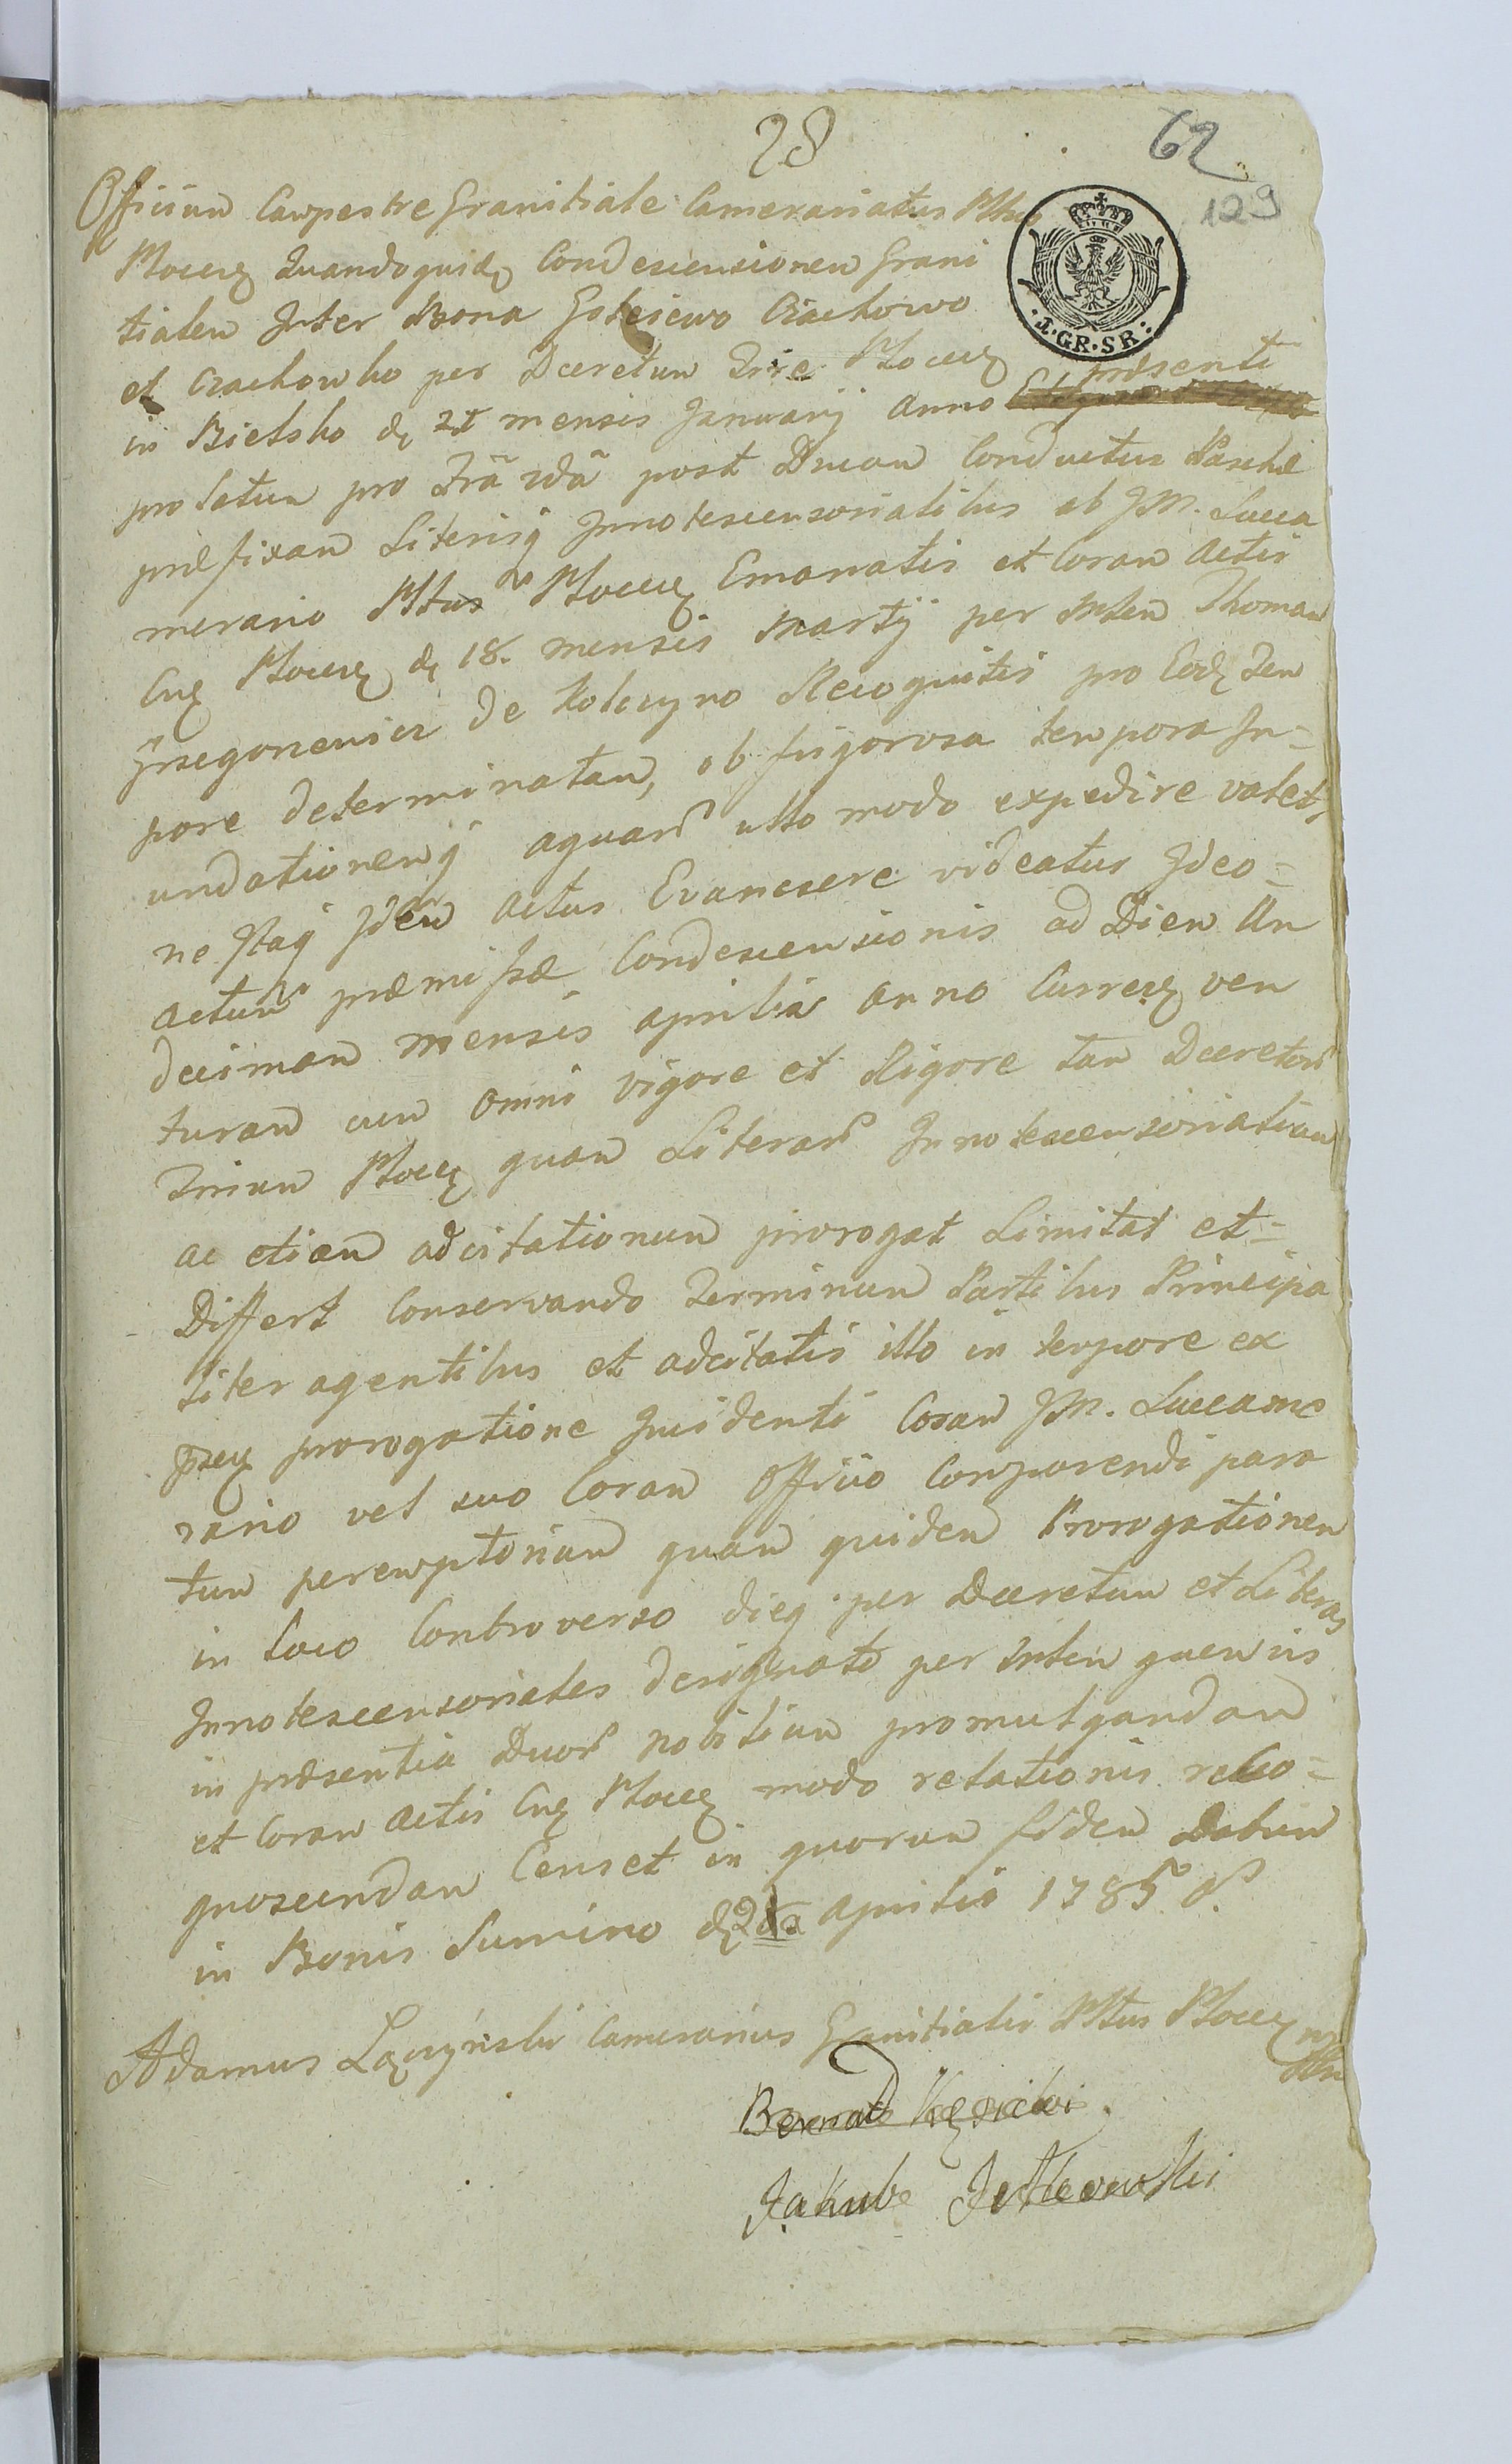 28
62
129
1.GR.SR:
Officium Campestre Granitiale Camerariatus Pltus
Plocen Quandoquidę Condescensionem Grani
tialem Inter Bona Goleiewo Ciachowo
et Ciachowko per Decretum Trire Plocen
præsenti
in Bielsko dę 21 mensis Januarij anno
prolatum pro Fra 2da post Dncam Conductus Paschæ
præfixam Literisq Innotescensorialibus ab JM. Succa
merario Pltus Plocen Emanatis et Coram Actis
Cns Plocen dę 18. mensis Martij per Mtem Thomam
Grzegorzewicz de Kobczyno Recognitis pro Eodę Tem
pore determinatam, ob frigorosa tempora In=
undationemq aquarũ ullo modo expedire valet,
ne Itaq Idem actus Evanescere videatur Ideo=
actum præmissæ Condescensionis ad Diem Un
decimam mensis aprilis anno Curren ven
turam cum omni vigore et Rigore tam Decretorũ
Triium Plocen quam Literarũ Innotescensorialium
ac etiam adcitationum prorogat Limitat et=
Differt Conservando Terminum Partibus Principa
liter agentibus et adcitatis illo in tempore ex
prorogatione Incidenti Coram JM. Succame
rario vel suo Coram Officio Comparendi para
tum peremptorium quam quidem Prorogationem
in Loco Controverso dieq per Decretum et Literas
Innotescensoriales designato per Mtem quemvis
in præsentia Duorũ nobilium promulgandam
et Coram Actis Cns Plocen modo relationis reco=
gnoscendam Censet in quorum fidem Datum
in Bonis Sumino dę aprilis 1785
Adamus Łączyński Camerarius Granitialis Pltus Plocen mp
Bernard
Jakub